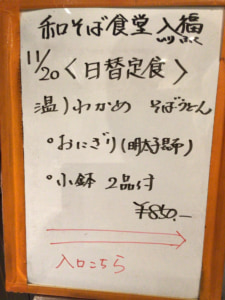 和そば食堂 入福
いりふく
11/20 〈日替定食〉
温)わかめ そばうどん
・おにぎり(明太子昆布)
・小鉢 2品付
¥850.-
入口こちら